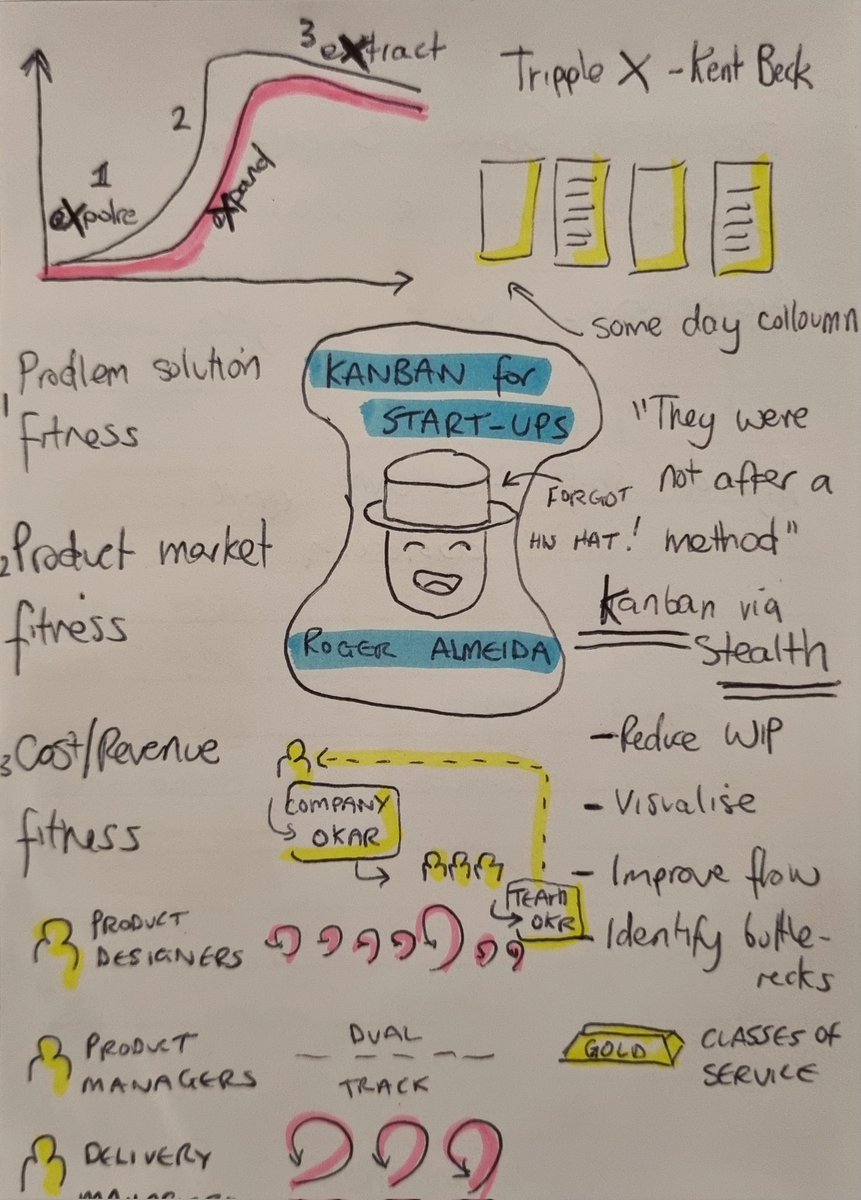 3 extract
Tripple X - Kent Beck
2
1
expolre
expand
some day colloumn
1 Prodlem solution
fitness
KANBAN for
START-UPS
"They were
not after a
method"
FORGOT
HN HAT!
2 Product market
fitness
Kanban via
Stealth
ROGER ALMEIDA
- Reduce WIP
- Visualise
- Improve flow
- Identify bottle-
necks
3 Cost/Revenue
fitness
COMPANY
OKAR
TEAM
OKR
PRODUCT
DESIGNERS
PRODUCT
MANAGERS
DUAL
TRACK
GOLD
CLASSES OF
SERVICE
DELIVERY